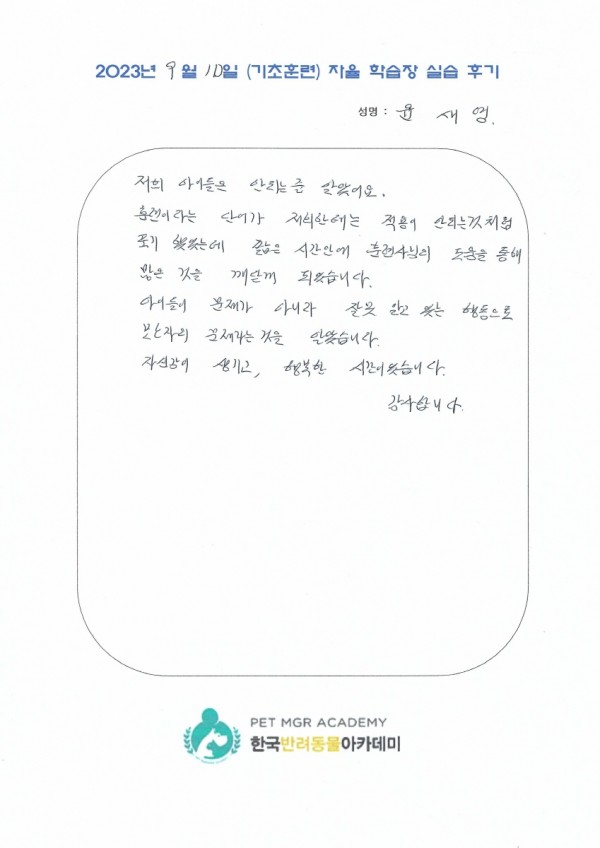 2023년 9월 10일 (기초훈련) 자율 학습장 실습 후기
성명 : 윤 새 영.
저희 아이들은 안되는줄 알았어요.
훈련이라는 단어가 저희한테는 적용이 안되는것처럼
포기 했었는데 짧은 시간안에 훈련사님의 도움을 통해
많은 것을 깨닫게 되었습니다.
아이들이 문제가 아니라 잘못 알고 있는 행동으로
보호자의 문제라는것을 알았습니다.
자신감이 생기고, 행복한 시간이었습니다.
감사합니다.
PET MGR ACADEMY
한국반려동물아카데미